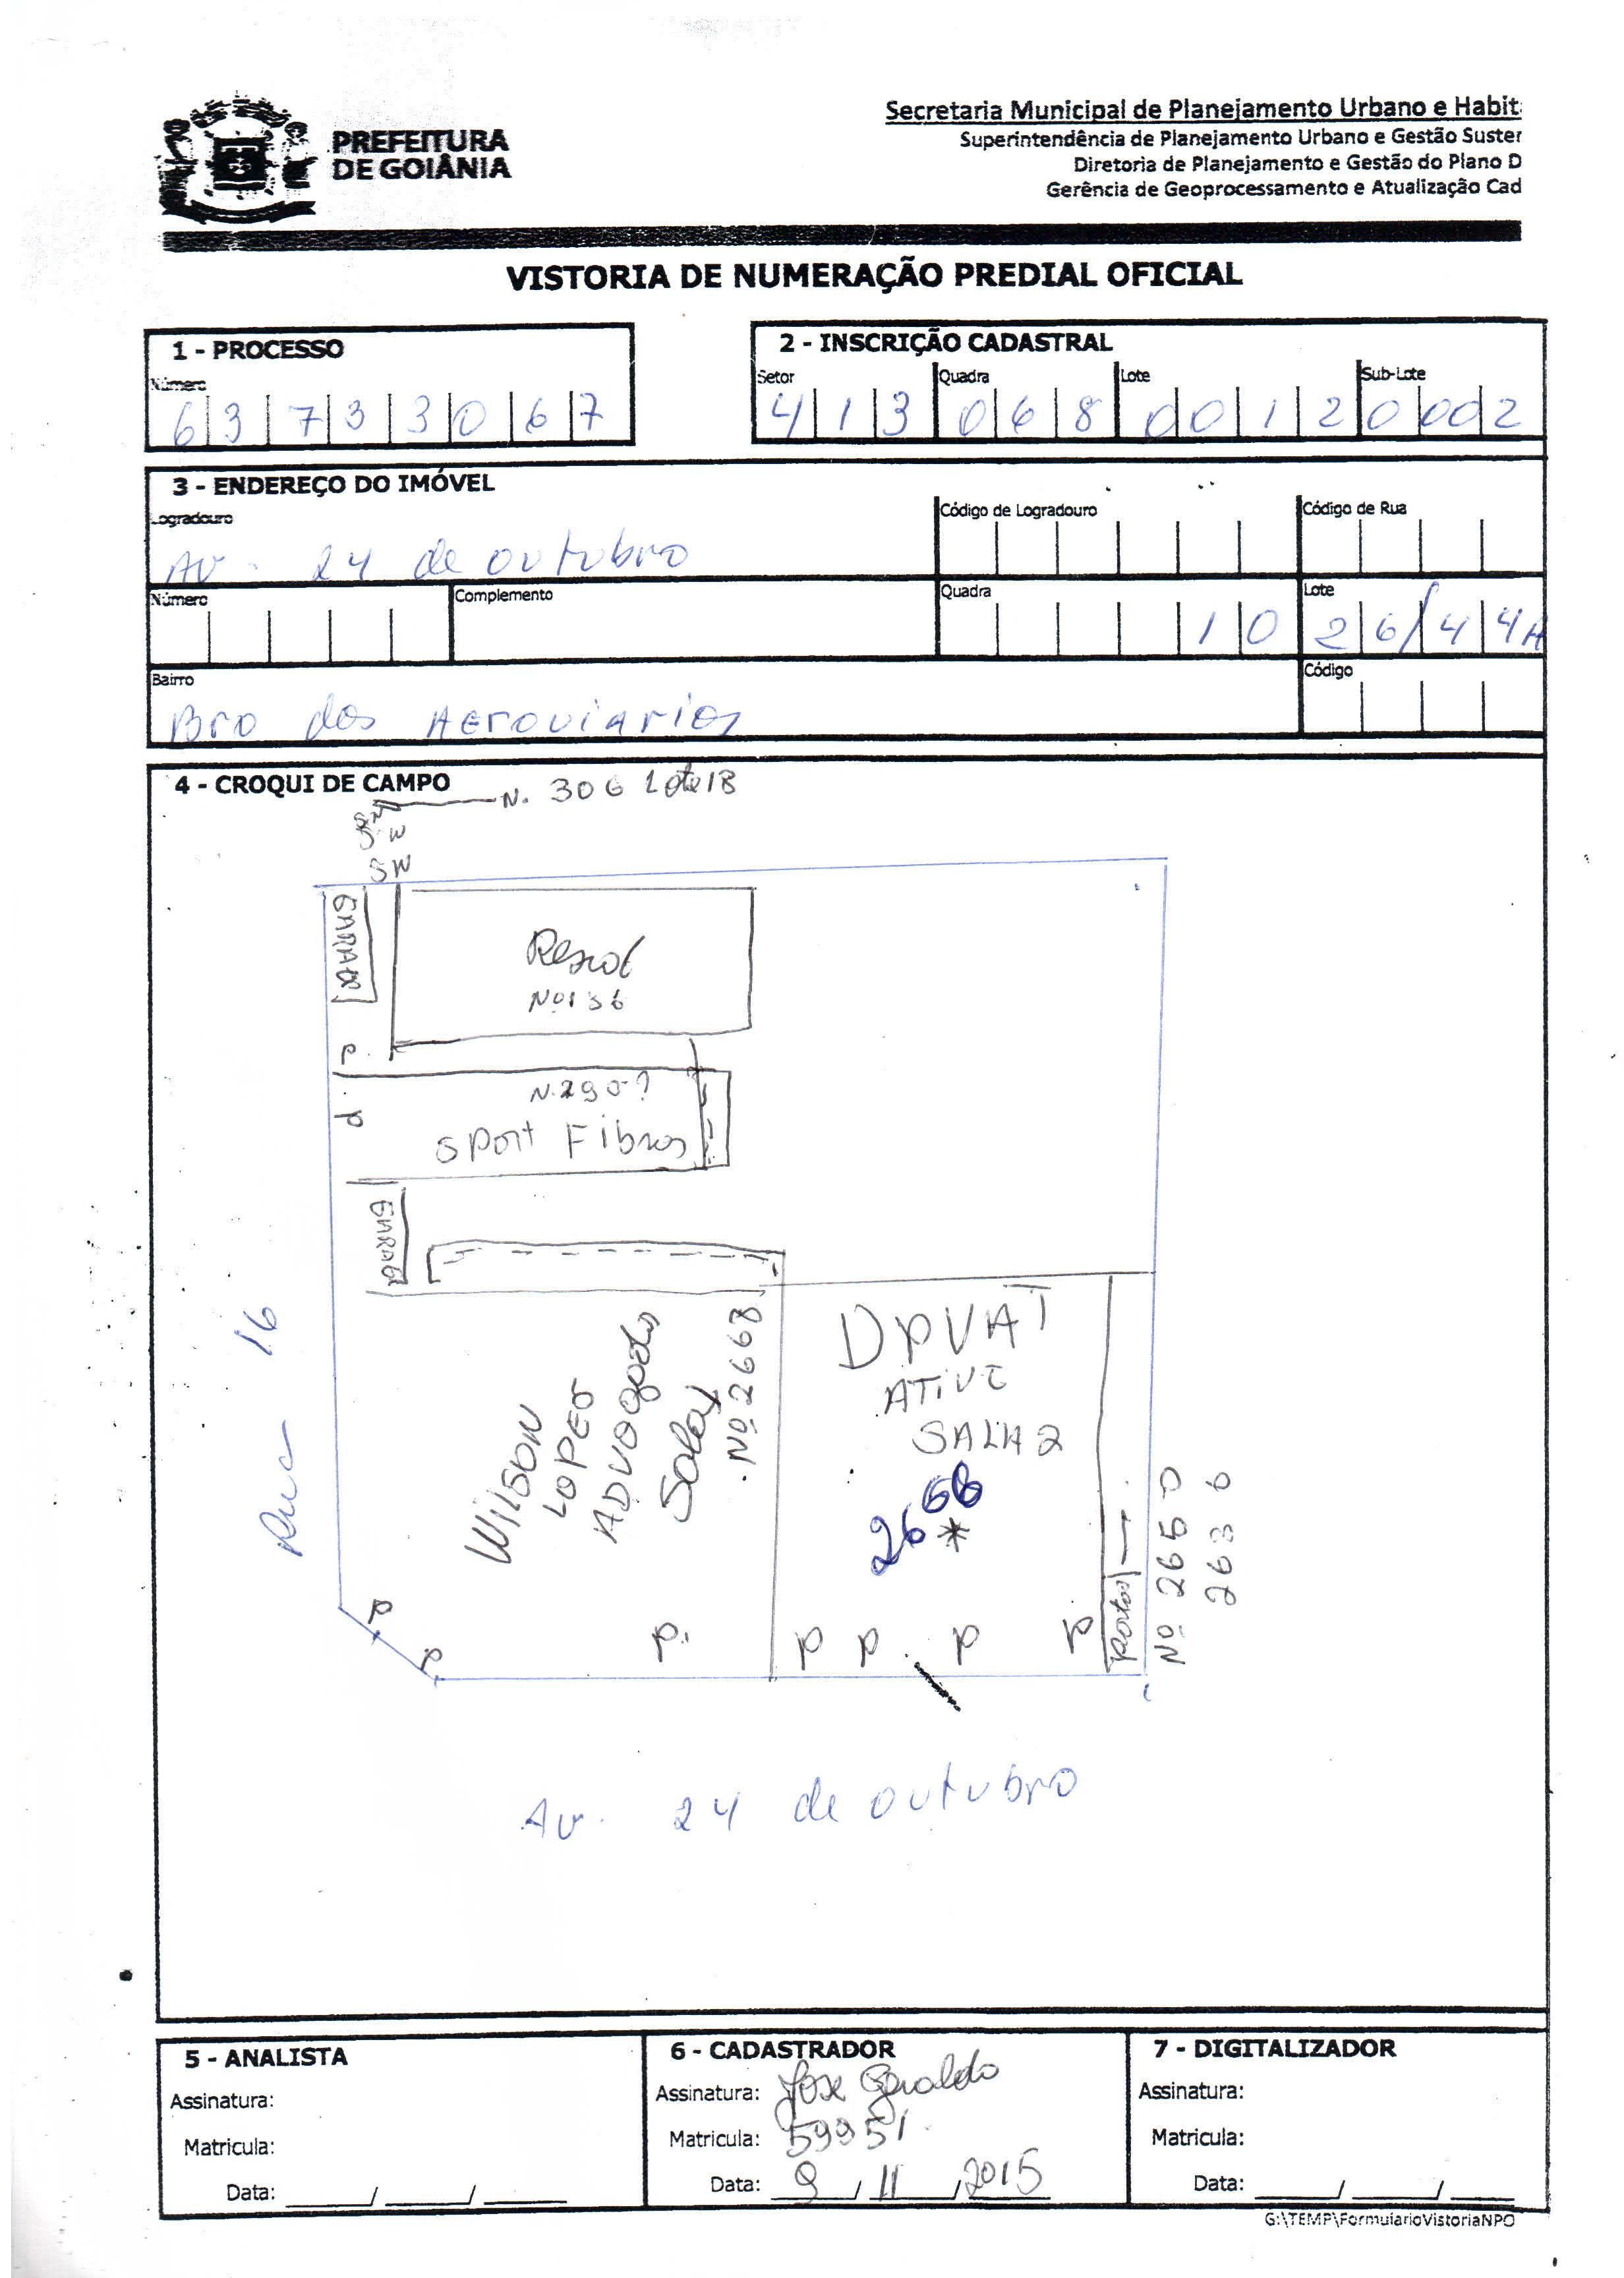 PREFEITURA
DE GOIÂNIA
Secretaria Municipal de Planejamento Urbano e Habit
Superintendência de Planejamento Urbano e Gestão Suster
Diretoria de Planejamento e Gestão do Plano D
Gerência de Geoprocessamento e Atualização Cad
VISTORIA DE NUMERAÇÃO PREDIAL OFICIAL
1 - PROCESSO
Número
6 3 7 3 3 0 6 7
2 - INSCRIÇÃO CADASTRAL
Setor Quadra Lote Sub-Lote
4 1 3 0 6 8 0 0 1 2 0 0 0 2
3 - ENDEREÇO DO IMÓVEL
Logradouro Código de Logradouro Código de Rua
Av. 24 de outubro
Número Complemento Quadra Lote
1 0 2 6 / 4 4 A
Bairro Código
Bro dos Aeroviarios
4 - CROQUI DE CAMPO
N. 306 Lote 18
SN
SN
GARAGE
Resid
Nº 136
P.
N. 290?
P
SPORT Fibras
GARAG
Rua 16
WILSON
LOPES
ADVOGADO
Sala 1
Nº 2668
DPVAT
ATIVE
SALA 2
2668
*
Portão
Nº 2650
2636
P P P. P P P P
Av. 24 de outubro
5 - ANALISTA
Assinatura:
Matricula:
Data: ____/____/____
6 - CADASTRADOR
Assinatura: Jose Geraldo
Matricula: 59951
Data: 9/11/2015
7 - DIGITALIZADOR
Assinatura:
Matricula:
Data: ____/____/____
G:\TEMP\FormularioVistoriaNPO